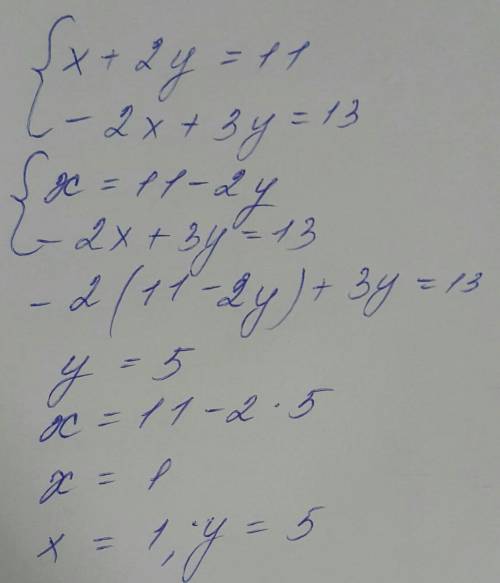 x + 2y = 11
- 2x + 3y = 13
x = 11 - 2y
- 2x + 3y = 13
- 2(11 - 2y) + 3y = 13
y = 5
x = 11 - 2 · 5
x = 1
x = 1; y = 5